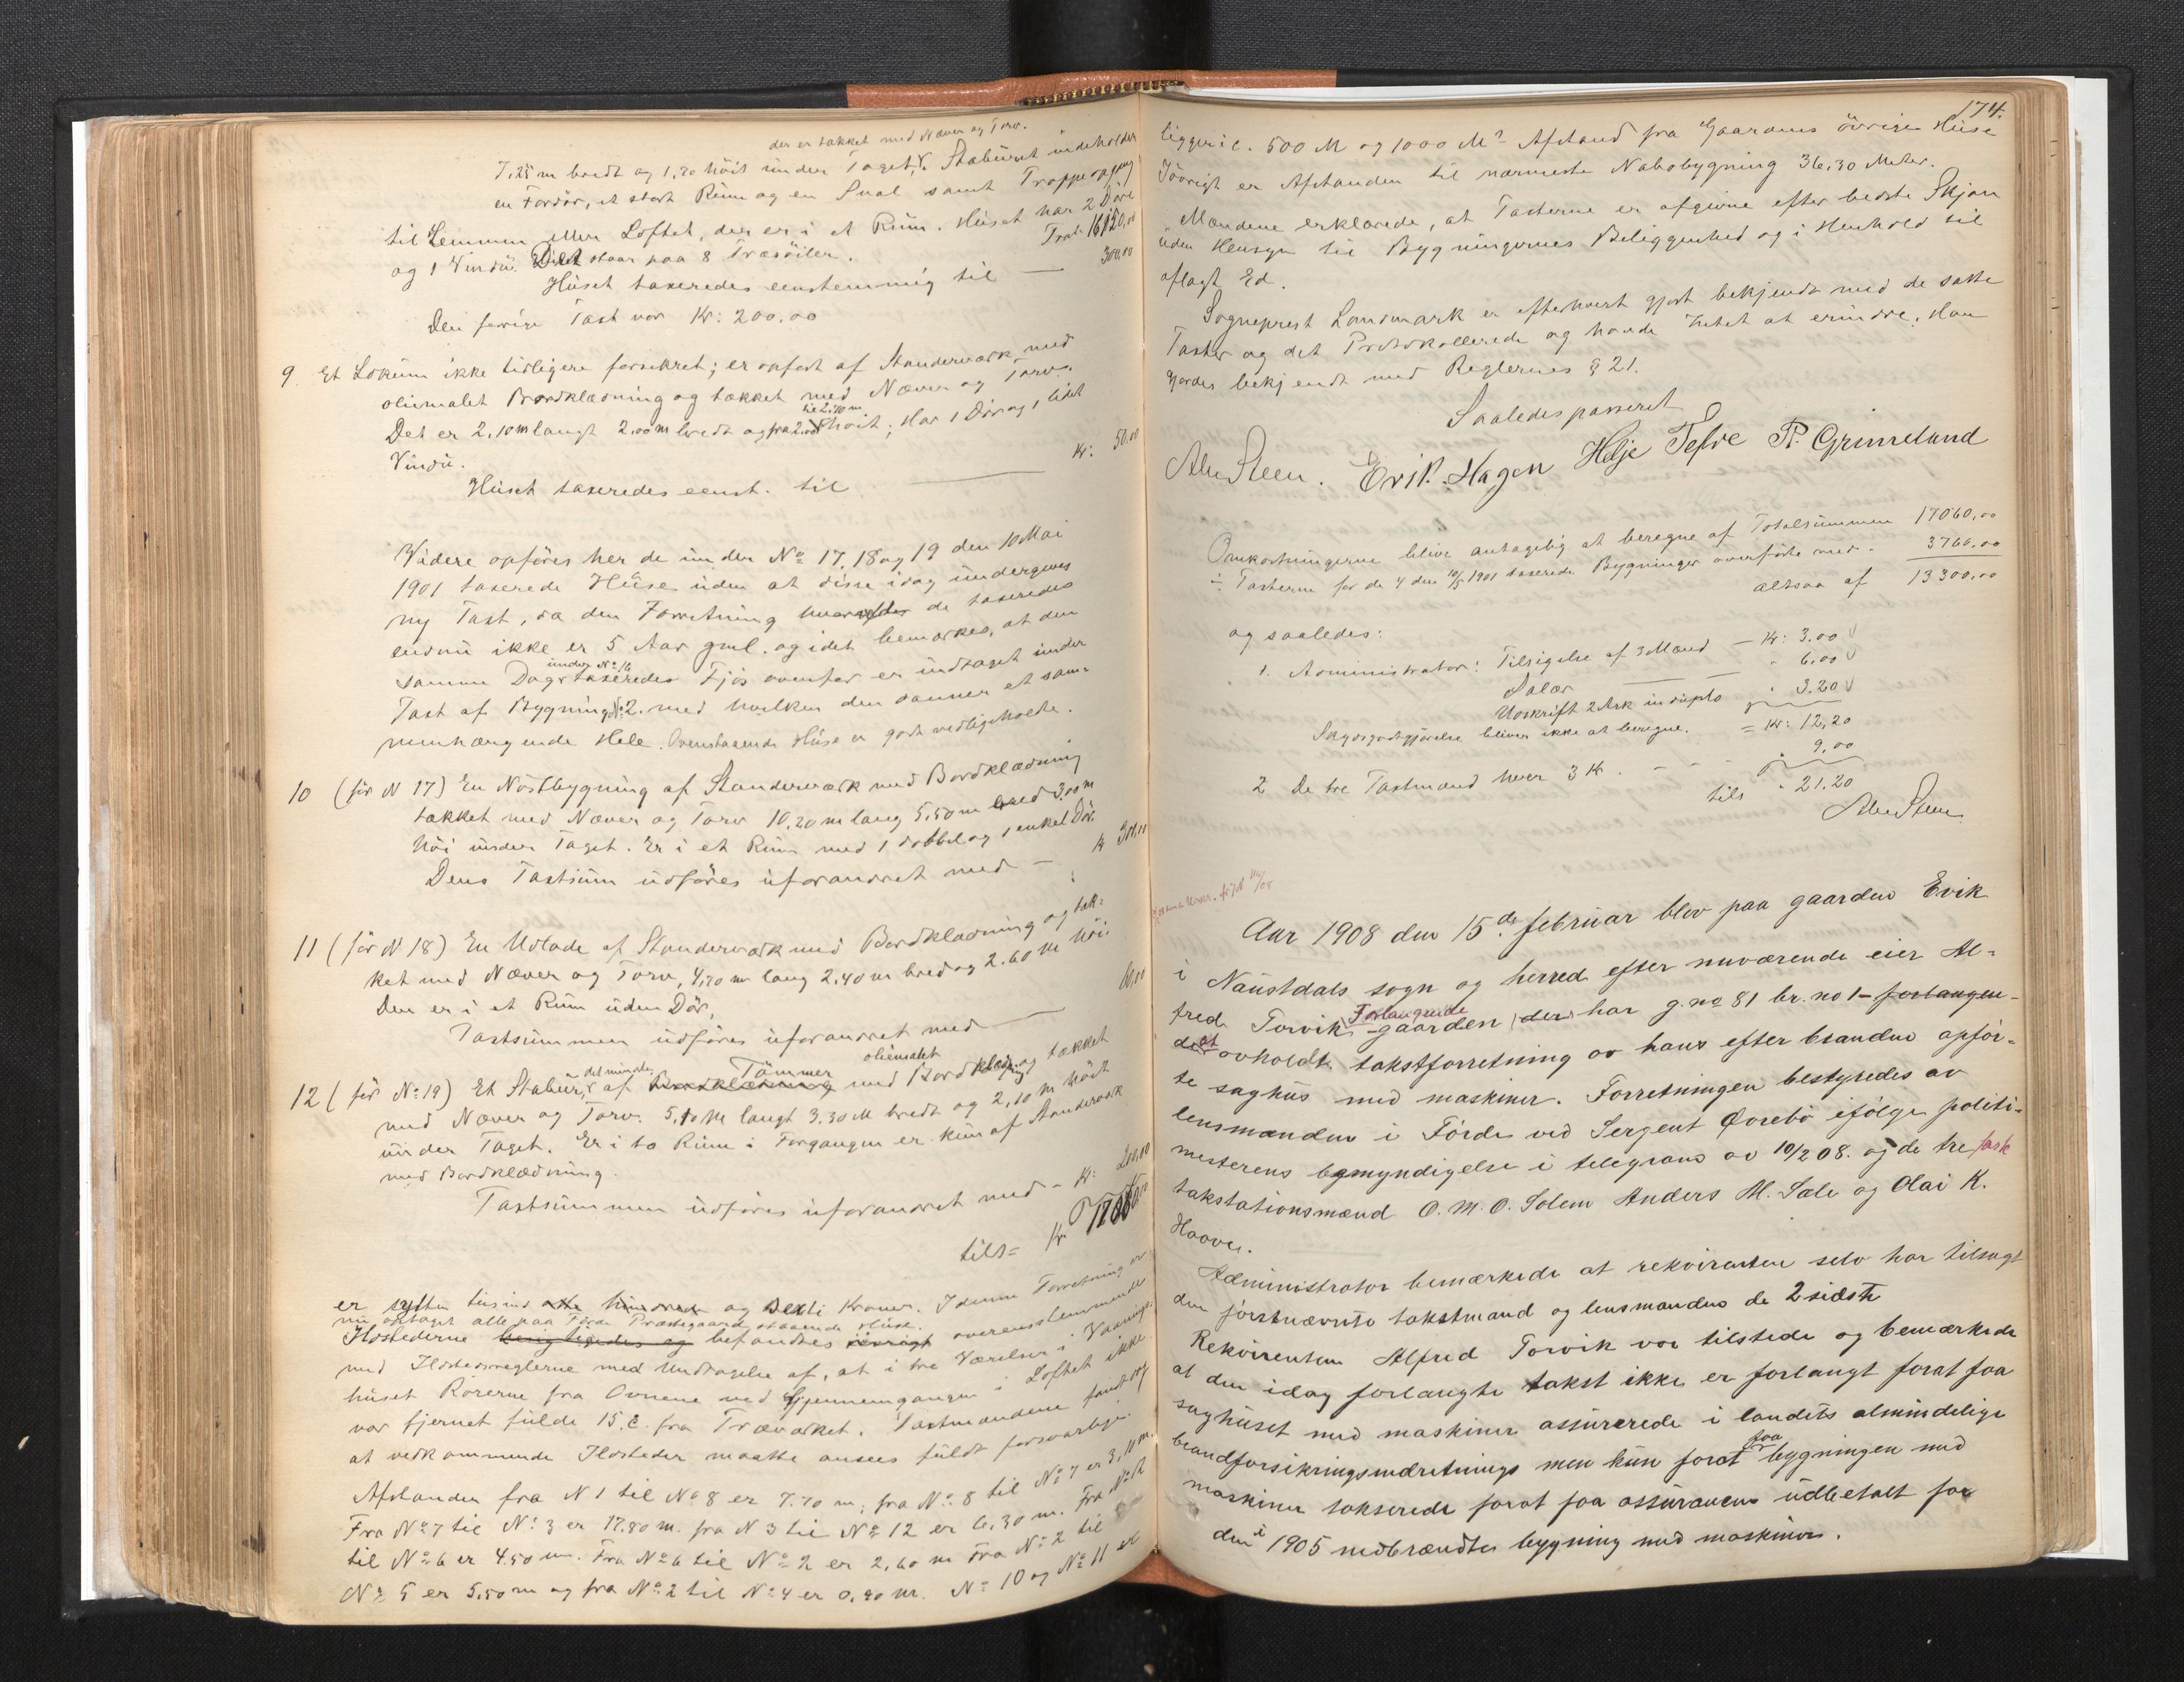 der er tækket med Næver og Torv.
7,25 m bredt og 1,70 höit under Taget. Staburet indeholder
en Fordör, et stort Rum og en Sval samt Trappeopgang
til Lemmen eller Loftet, der er i et Rum. Huset har 2 Döre
og 1 Vindu. Det staar paa 8 Træsöiler. Trsp. 16150,00
Huset taxeredes eenstemmig til — 300.00
Den forrige Taxt var Kr: 200.00
9. Et Lokum ikke tidligere forsikret; er opfört af Standerværk med
oliemalet Bordklædning og tækket med Næver og Torv.
til 2,70 m
Det er 2,10 m langt 2,00 m bredt og fra 2,00 höit; Har 1 Dör og 1 lidet
Vindu.
Huset taxeredes eenst. til — Kr: 50.00
Videre opföres her de under No 17, 18 og 19 den 10 Mai
1901 taxerede Huse uden at disse idag undergives
ny Taxt, da den Forretning hvorefter de taxeredes
endnu ikke er 5 Aar gml. og idet bemærkes, at den
under No 16
samme Dag taxeredes Fjös ovenfor er indtaget under
Taxt af Bygning No 2. med hvilken den danner et sam-
menhængende Hele. Ovenstaaende Huse er godt vedligeholdte.
10 (för N 17) En Nöstbygning af Standerværk med Bordklædning
tækket med Næver og Torv 10,20 m lang 5,50 m bred 3,00 m
höi under Taget. Er i et Rum med 1 dobbel og 1 enkel Dör.
Dens Taxtsum udföres uforandret med — Kr 300,00
11 (för N 18) En Udlade af Standerværk med Bordklædning og tæk-
ket med Næver og Torv, 4,70 m lang 2,40 m bred og 2.60 m höi.
Den er i et Rum uden Dör,
Taxtsummen udföres uforandret med — 60,00
det mindre Tömmer oliemalet
12 (för No 19) Et Stabur, af Bordklædning med Bordklædning tækket
med Næver og Torv. 5,10 M langt 3.30 M bredt og 2,10 m höit
under Taget. Er i to Rum i Forgangen er kun af Standerværk
med Bordklædning.
Taxtsummen udföres uforandret med — Kr: 200,00
tils = Kr 17060,00
er sytten tusind otte hundrede og sexti Kroner. I denne Forretning er
nu optaget alle paa Förde Præstegaard staaende Huse.
Ildstederne besigtigedes og befandtes iövrigt overensstemmende
med Ildstedsreglerne med Undtagelse af, at i tre Værelser i Vaanings-
huset Rörerne fra Ovnene ved Gjennemgangen i Loftet ikke
var fjernet fulde 15 c. fra Træværket. Taxtmændene fandt dog
at vedkommende Ildsteder maatte ansees fuldt forsvarlige.
Afstanden fra N 1 til No 8 er 7.70 m, fra No 8 til No 7 er 3,10 m.
Fra No 7 til No 3 er 17.80 m. fra N 3 til No 12 er 6,30 m. Fra No 12
til No 6 er 4.50 m. Fra No 6 til No 2 er 2,60 m Fra No 2 til
No 5 er 5,50 m og fra No 2 til No 4 er 0,90 m. No 10 og No 11 er
174.
liggeri c. 500 M og 1000 M? Afstand fra Gaardens övrige Huse
Iövrigt er Afstanden til nærmeste Nabobygning 36,30 Meter.
Mændene erklærede, at Taxterne er afgivne efter bedste Skjön
uden Hensyn til Bygningernes Beliggenhed og i Henhold til
aflagt Ed.
Sogneprest Landmark er efterhvert gjort bekjendt med de satte
Taxter og det Protokollerede og havde Intet at erindre. Han
gjordes bekjendt med Reglernes § 21.
Saaledes passeret
Alm Steen. Erik. Hagen Helje Tefre P. Grimeland
Omkostningerne blive antagelig at beregne af Totalsummen 17060,00
÷ Taxterne for de 4 den 10/5 1901 taxerede Bygninger overförte med - 3760.00
altsaa af 13300.00
og saaledes:
1. Administrator: Tilsigelse af 3 Mænd — Kr: 3.00
Salær — " 6.00
Udskrift 2 Ark in duplo " 3.20
Skydsgodtgjörelse bliver ikke at beregne. = Kr: 12,20
2 De tre Taxtmænd hver 3 Kr. — " 9,00
tils " 21.20
Alm Steen
Aar 1908 den 15de februar blev paa gaarden Evik
i Naustdals sogn og herred efter nuværende eier Al-
Forlangende
fred Torvik gaarden (der) har g.no 81 br. no 1 - forlangen-
de at avholdt takstforretning av hans efter branden opför-
te saghus med maskiner. Forretningen bestyredes av
lensmanden i Förde ved Sergent Övrebö ifölge politi-
mesterens bemyndigelse i telegram av 10/2 08. og de tre fast
takstationsmænd O. M. O. Solem Anders M. Sæle og Olai K.
Haave.
Administrator bemærkede at rekvirenten selv har tilsagt
den förstnævnte takstmand og lensmanden de 2 sidste
Rekvirenten Alfred Torvik var tilstede og bemærkede
at den idag forlangte takst ikke er forlangt forat faa
saghuset med maskiner assurerede i landets almindelige
faa
brandforsikringsindretnings men kun forat bygningen med
maskiner takserede forat faa assurancen udbetalt for
den i 1905 nedbrændte bygning med maskiner.